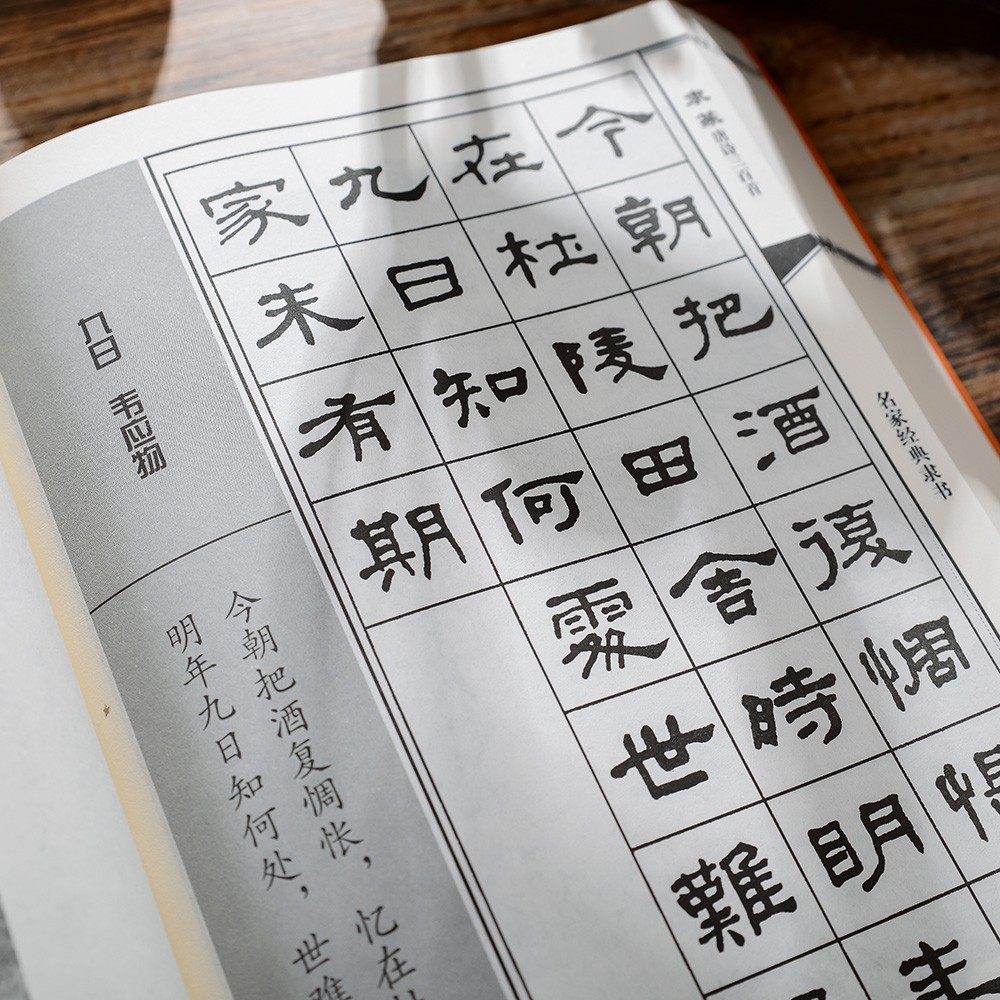 隶篆唐诗三百首
名家经典隶书
今朝把酒復惆
在杜陵田舍時明年
九日知何處世難
家未有期
九日 韦应物
今朝把酒复惆怅，忆在
明年九日知何处，世难